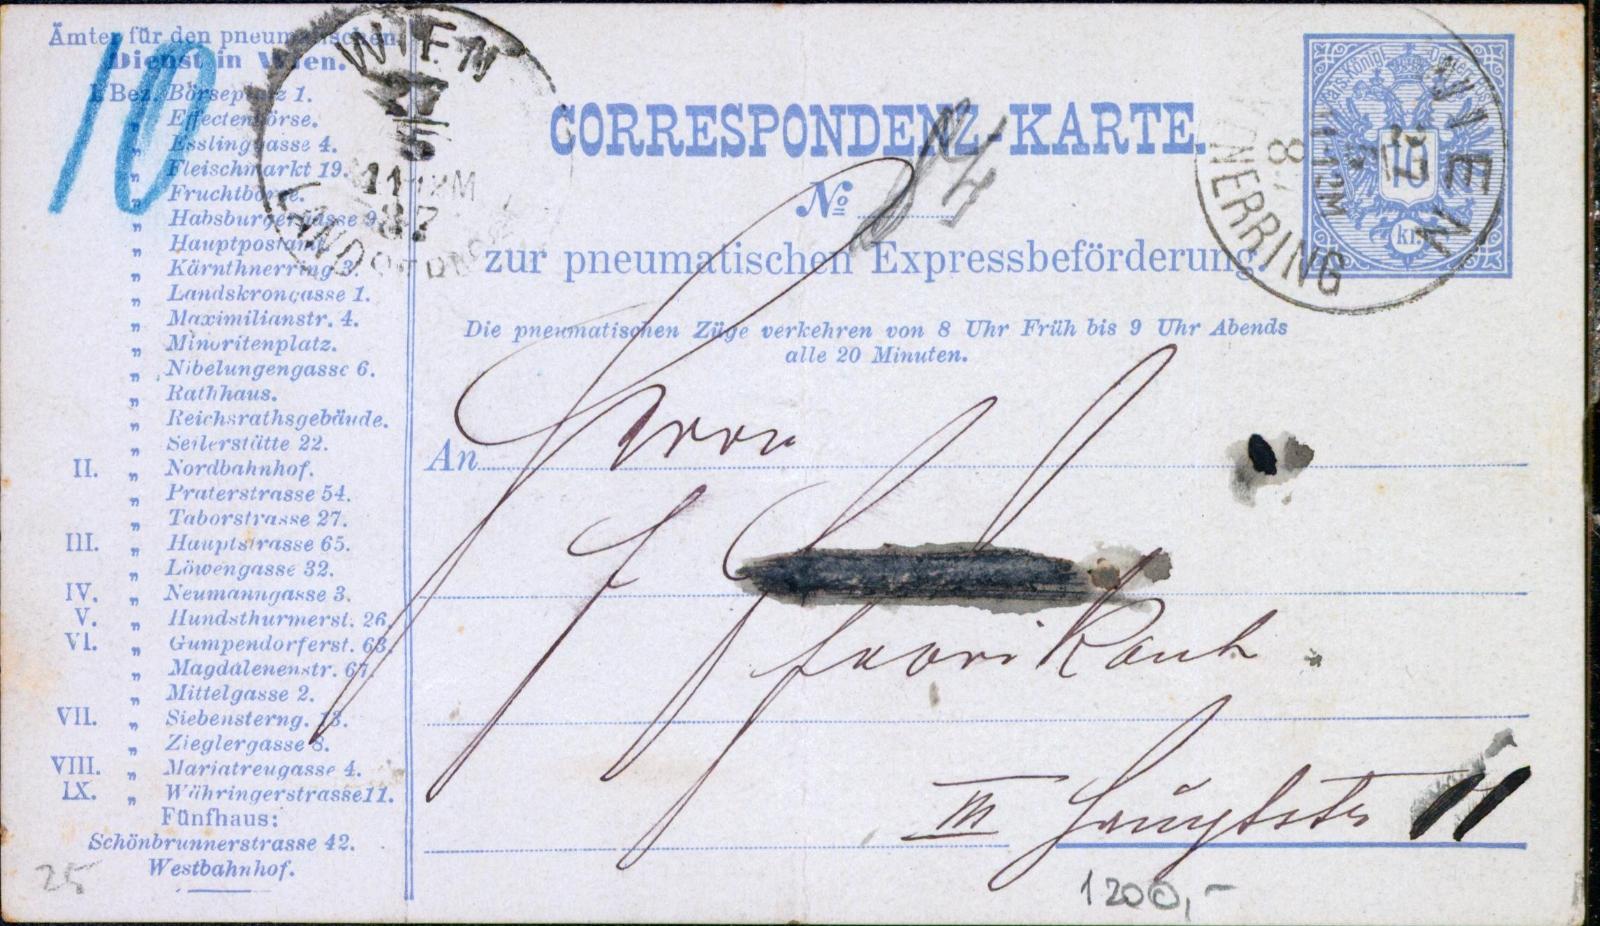 Ämter für den pneumatischen
Dienst in Wien.
I. Bez. Börseplatz 1.
" Effectenbörse.
" Esslinggasse 4.
" Fleischmarkt 19.
" Fruchtbörse.
" Habsburgergasse 9.
" Hauptpostamt.
" Kärnthnerring 3.
" Landskrongasse 1.
" Maximilianstr. 4.
" Minoritenplatz.
" Nibelungengasse 6.
" Rathhaus.
" Reichsrathsgebäude.
" Seilerstätte 22.
II. " Nordbahnhof.
" Praterstrasse 54.
" Taborstrasse 27.
III. " Hauptstrasse 65.
" Löwengasse 32.
IV. " Neumanngasse 3.
V. " Hundsthurmerst. 26.
VI. " Gumpendorferst. 63.
" Magdalenenstr. 67.
" Mittelgasse 2.
VII. " Siebensterng. 13.
" Zieglergasse 8.
VIII. " Mariatreugasse 4.
IX. " Währingerstrasse 11.
Fünfhaus:
Schönbrunnerstrasse 42.
Westbahnhof.
10
25
WIEN
27
5
11-12M
87
CORRESPONDENZ-KARTE.
No
zur pneumatischen Expressbeförderung.
Die pneumatischen Züge verkehren von 8 Uhr Früh bis 9 Uhr Abends
alle 20 Minuten.
10
kr.
WIEN
27
5
11-12M
87
An Herrn
Fabrikant
III Hauptstr 11
1200,-